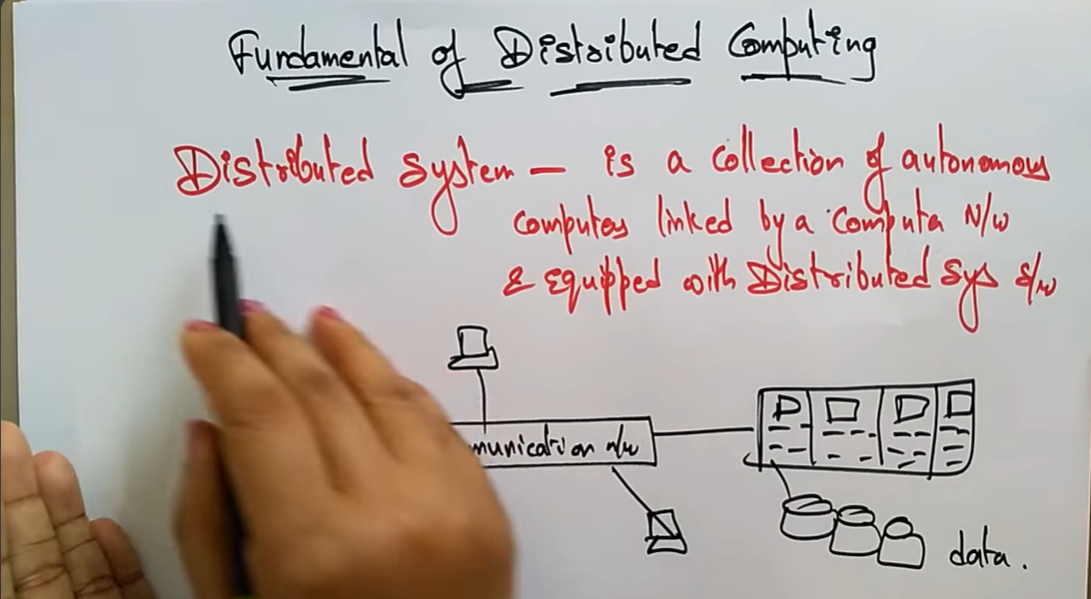 Fundamental of Distributed Computing
Distributed system — is a collection of autonomous
computers linked by a computer N/w
& equipped with Distributed sys s/w
munication n/w
data.